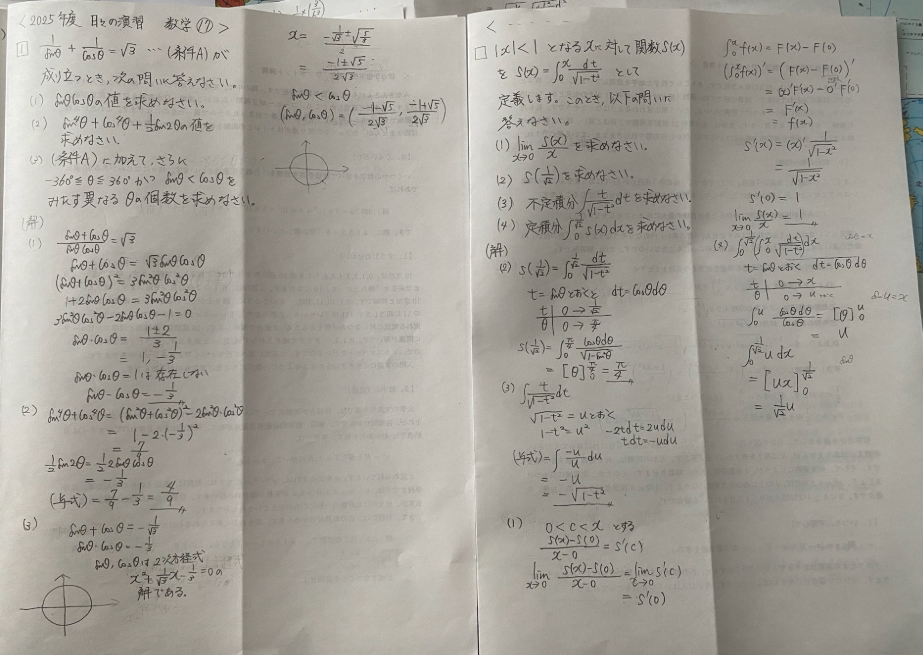 <2025年度 日々の演習 数学⑰>
1 1/sinθ + 1/cosθ = √3 … (条件A) が
成り立つとき、次の問いに答えなさい。
(1) sinθcosθの値を求めなさい。
(2) sin⁴θ + cos⁴θ + 1/2 sin2θの値を
求めなさい。
(3) (条件A)に加えて、さらに
-360°≦θ≦360°かつ sinθ<cosθを
みたす異なるθの個数を求めなさい。
(解)
(1) (sinθ+cosθ)/(sinθcosθ) = √3
sinθ+cosθ = √3 sinθcosθ
(sinθ+cosθ)² = 3sin²θcos²θ
1+2sinθcosθ = 3sin²θcos²θ
3sin²θcos²θ-2sinθcosθ-1=0
sinθ·cosθ = (1±2)/3
= 1, -1/3
sinθ·cosθ=1は存在しない
sinθ·cosθ = -1/3
(2) sin⁴θ+cos⁴θ = (sin²θ+cos²θ)²-2sin²θ·cos²θ
= 1-2·(-1/3)²
= 7/9
1/2 sin2θ = 1/2·2sinθcosθ
= -1/3
(与式) = 7/9 - 1/3 = 4/9
(3) sinθ+cosθ = -1/√3
sinθ·cosθ = -1/3
sinθ, cosθは2次方程式
x²+1/√3 x-1/3=0の
解である。
x = (-1/√3 ± √(5/3))/2
= (-1±√5)/(2√3)
sinθ<cosθ
(sinθ, cosθ) = ((-1-√5)/(2√3), (-1+√5)/(2√3))
□ |x|<1 となるxに対して関数S(x)
を S(x) = ∫₀ˣ dt/√(1-t²) として
定義します。このとき、以下の問いに
答えなさい。
(1) lim x→0 S(x)/x を求めなさい。
(2) S(1/√2)を求めなさい。
(3) 不定積分 ∫ t/√(1-t²) dtを求めなさい。
(4) 定積分 ∫₀^(1/√2) S(x)dxを求めなさい。
(解)
(2) S(1/√2) = ∫₀^(1/√2) dt/√(1-t²)
t=sinθとおくと dt=cosθdθ
t | 0→1/√2
θ | 0→π/4
S(1/√2) = ∫₀^(π/4) cosθdθ/√(1-sin²θ)
= [θ]₀^(π/4) = π/4
(3) ∫ t/√(1-t²) dt
√(1-t²) = uとおく
1-t²=u² -2tdt=2udu
tdt=-udu
(与式) = ∫ -u/u du
= -u
= -√(1-t²)
(1) 0<c<xとする
(S(x)-S(0))/(x-0) = S'(c)
lim x→0 (S(x)-S(0))/(x-0) = lim c→0 S'(c)
= S'(0)
∫₀ˣ f(x) = F(x)-F(0)
(∫₀ˣ f(x))' = (F(x)-F(0))'
= (x)'F'(x)-0'F'(0)
= F'(x)
= f(x)
S'(x) = (x)' 1/√(1-x²)
= 1/√(1-x²)
S'(0) = 1
lim x→0 S(x)/x = 1
t=sinθとおく dt=cosθdθ
t | 0→x
θ | 0→u
sinu=x
∫₀ᵘ cosθdθ/cosθ = [θ]₀ᵘ
= u
∫₀^(1/√2) u dx
= [ux]₀^(1/√2)
= 1/√2 u